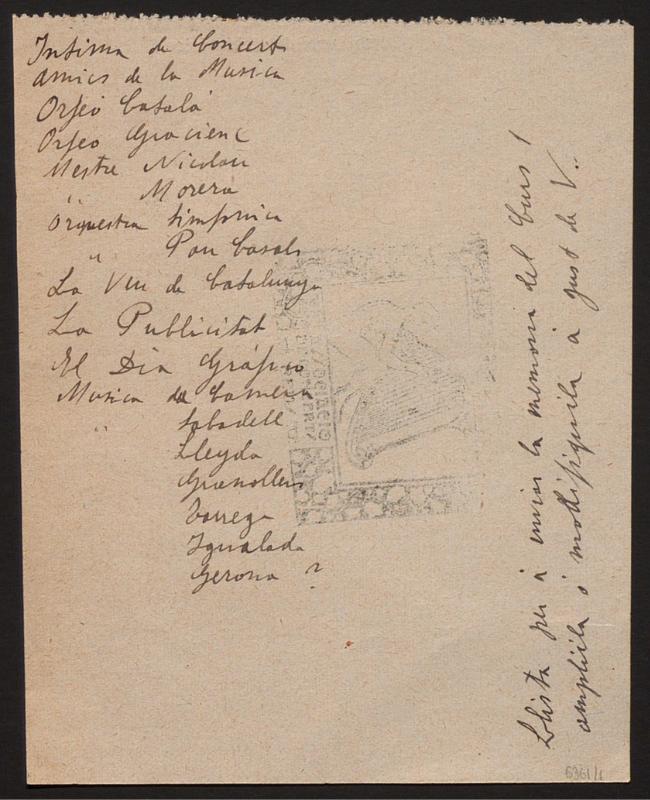 Intima de Concerts
Amics de la Musica
Orfeó Català
Orfeo Gracienc
Mestre Nicolau
" Morera
Orquestra Simfonica
" Pau Casals
La Veu de Catalunya
La Publicitat
El Dia Gráfico
Musica de Camera
" Sabadell
Lleyda
Granollers
Tarrega
Igualada
Gerona ?
Llista per á enviar la memoria del Curs!
ampliila ó modifiquila a gust de V..
6361/1